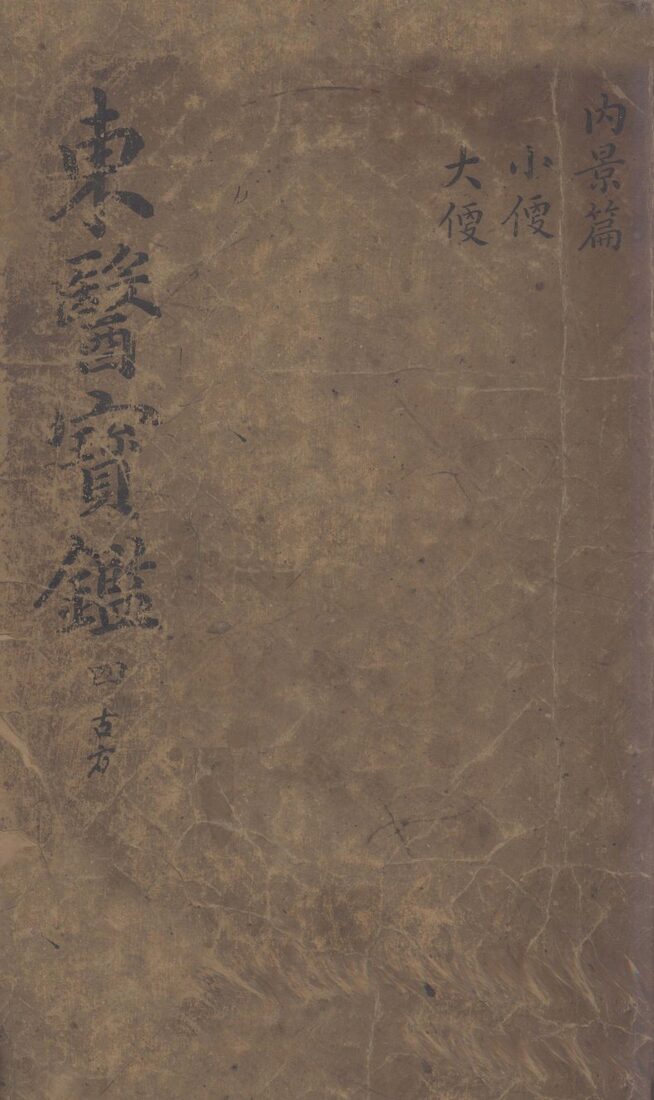 內景篇
小便
大便
東醫寶鑑 四 古方